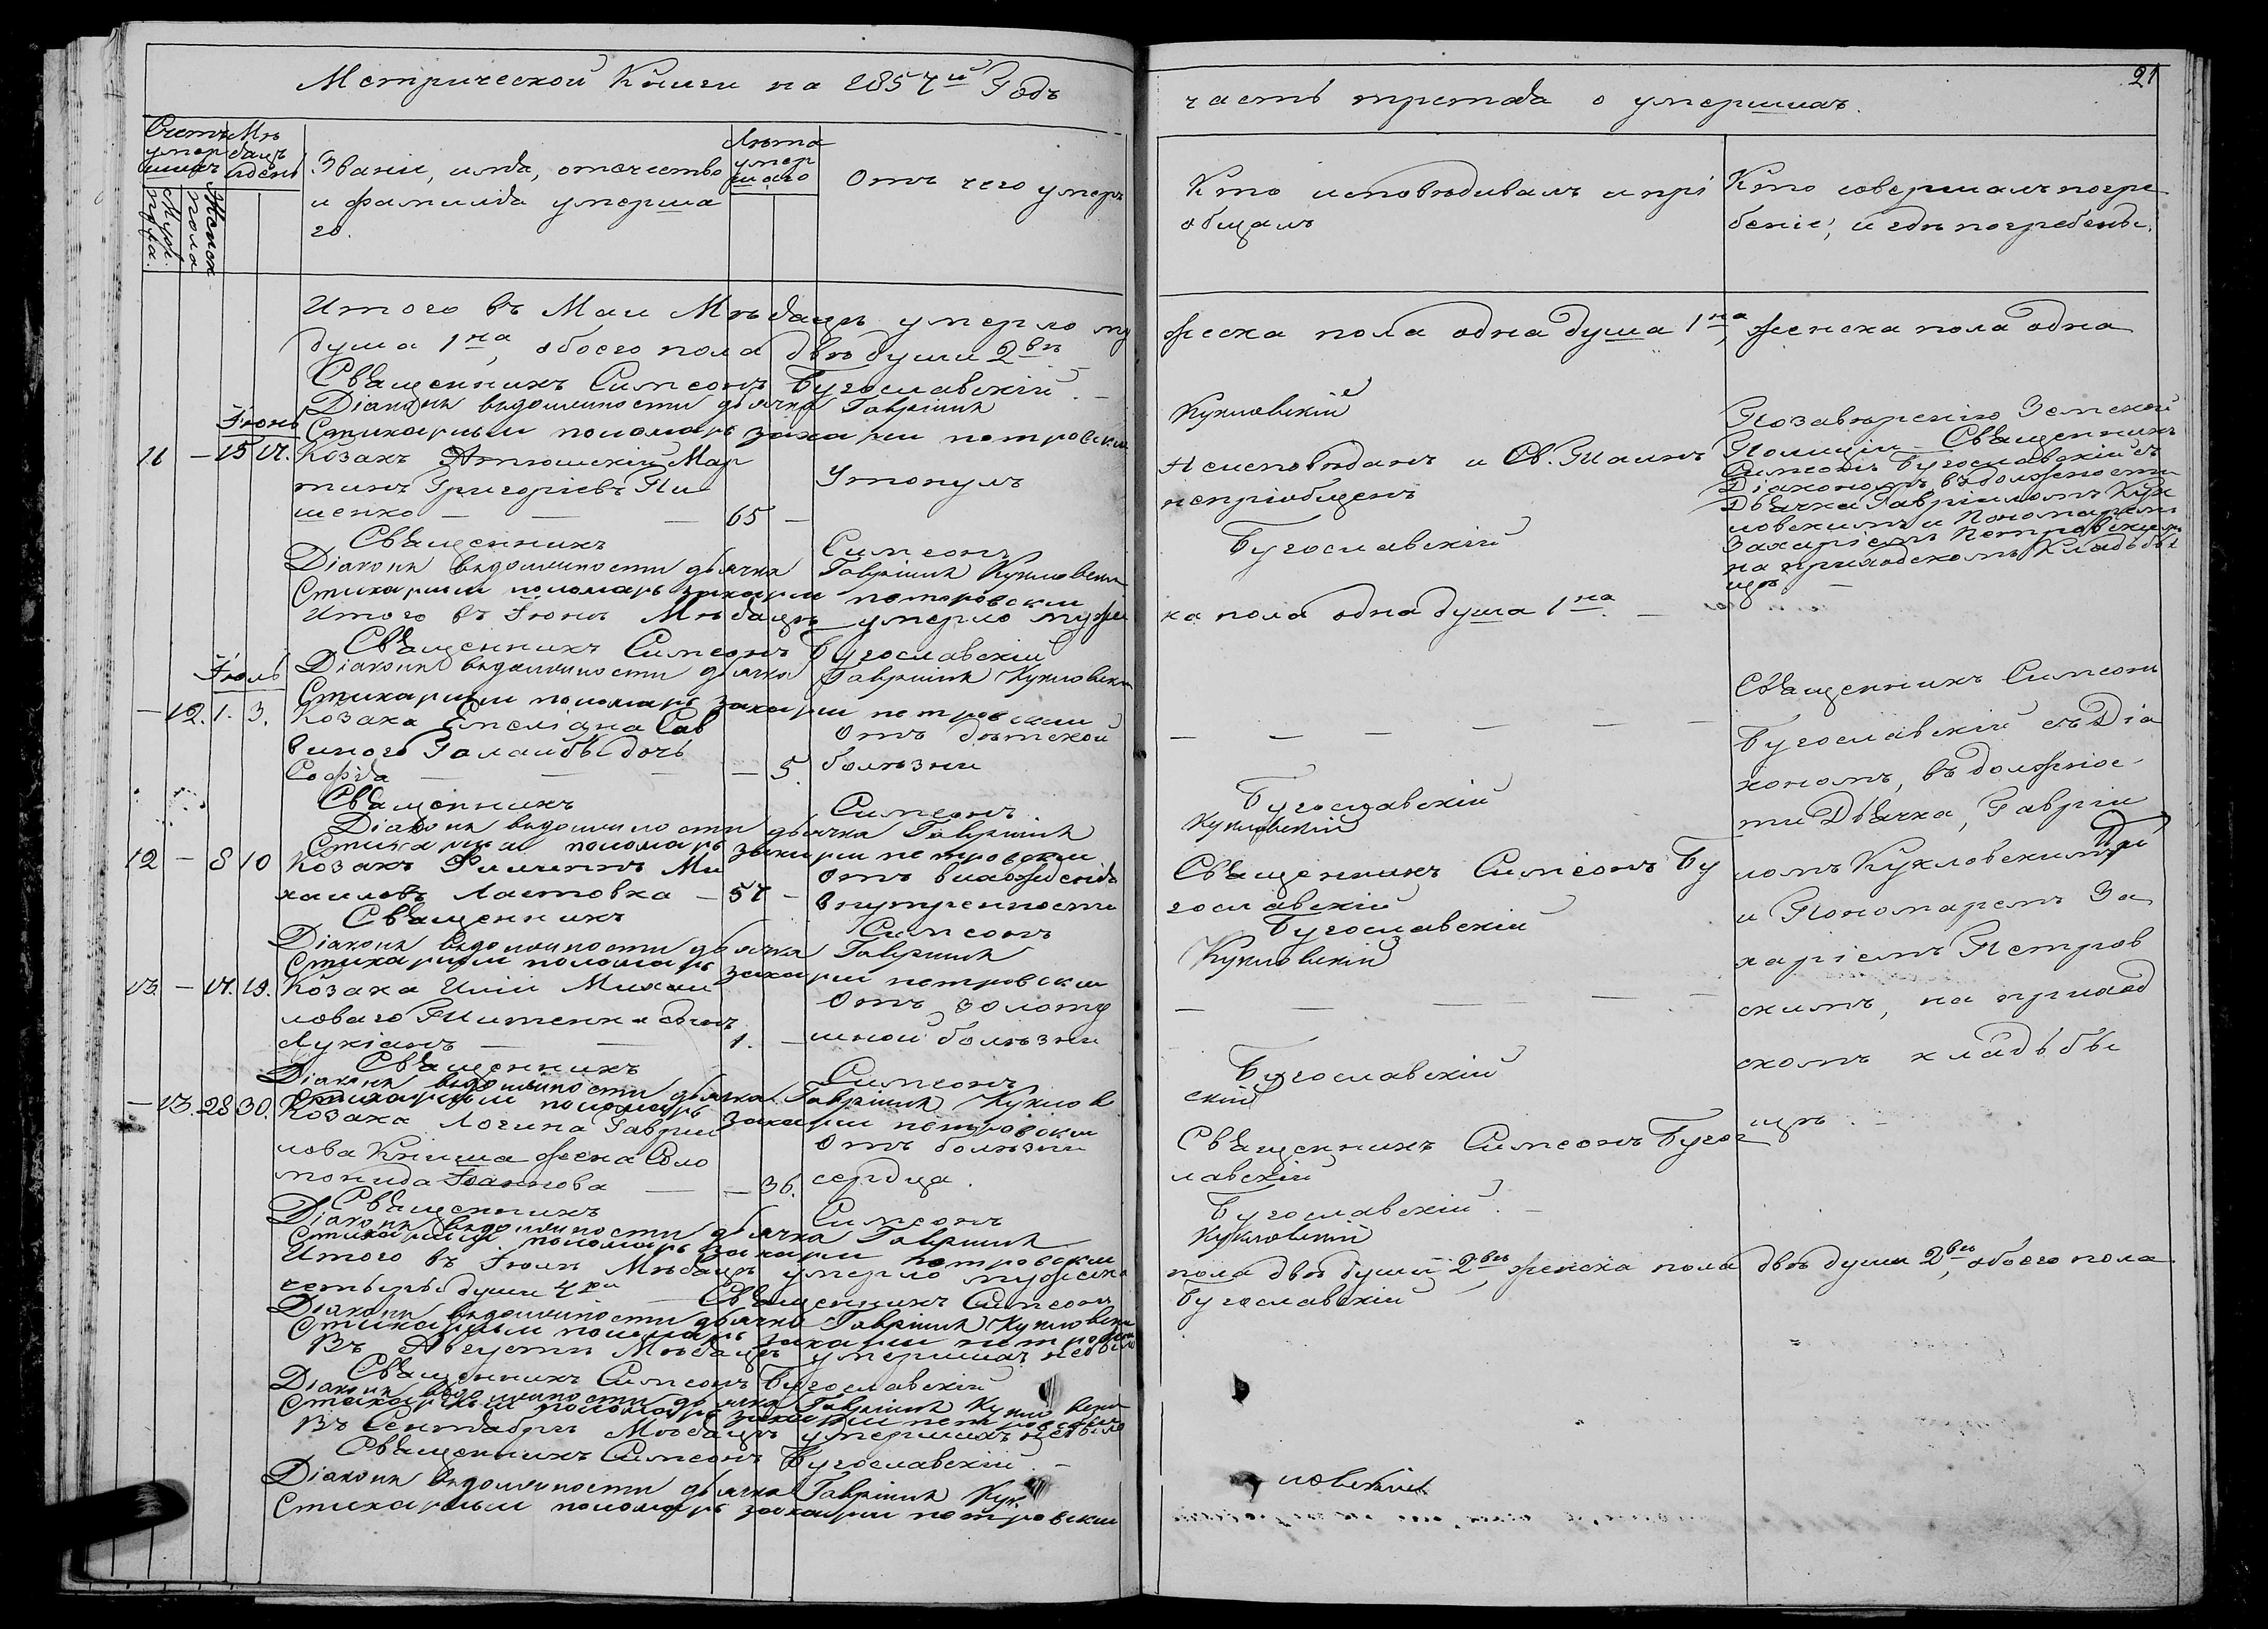 Метрической Книги на 1857й Годъ
часть третая о умершихъ.
21
Счетъ умершихъ
Мужс. пола.
Женск. пола
Мѣсяцъ и день
Званіе, имя, отечество
и фамилія умерша
го.
Лѣта умершаго
Отъ чего умеръ
Кто исповѣдивалъ и прі
общалъ
Кто совершалъ погре
беніе, и гдѣ погребены.
Итого въ Маи Мѣсяцѣ умерло му
жеска пола одна душа 1на, женска пола одна
душа 1на, обоего пола двѣ души 2вѣ
Священникъ Симеонъ Бугославскій
Діаконъ въ должности дьячка Гавріилъ
Кухловскій
Стихарный пономарь Захарій Петровскій
Іюнь
11 — 15 17. Козакъ Мар
тинъ Григоріевъ Ти
шенко — — — 65 —
Утонулъ
Неисповѣданъ и Св. Таинъ
непріобщенъ
По завѣренію Земской
Полиціи — Священникъ
Симеонъ Бугославскій съ
Діакономъ въ должности
Дьячка Гавріиломъ Кух
ловскимъ и Пономаремъ
Захаріемъ Петровскимъ
на приходскомъ Кладьби
щѣ —
Священникъ Симеонъ
Бугославскій
Діаконъ въ должности дьячка Гавріилъ Кухловскій
Стихарный пономарь Захарій Петровскій
Итого въ Іюнѣ Мѣсяцѣ умерло мужес
ка пола одна душа 1на. —
Священникъ Симеонъ Бугославскій
Діаконъ въ должности дьячка Гавріилъ Кухловскій
Стихарный пономарь Захарій Петровскій
Іюль
— 12. 1. 3. Козака Емеліана Сав
виного Галайбы дочь
Софія — — — — 5.
Отъ дѣтской
болѣзни
— — — — —
Священникъ Симеонъ
Бугославскій съ Діа
кономъ, въ должнос
ти Дьячка, Гавріи
ломъ Кухловскимъ
и Пономаремъ За
харіемъ Петров
скимъ, на приход
скомъ кладьби
щѣ. —
Священникъ Симеонъ
Бугославскій
Діаконъ въ должности дьячка Гавріилъ
Кухловскій
Стихарный пономарь Захарій Петровскій
12 — 8 10 Козакъ Филиппъ Ми
хаиловъ Ластовка — 57 —
Отъ
внутренности
Священникъ Симеонъ Бу
гославскій
Священникъ Симеонъ
Бугославскій
Діаконъ въ должности дьячка Гавріилъ
Кухловскій
Стихарный пономарь Захарій Петровскій
13. — 17. 19. Козака Иліи Михаи
ловаго Тишенка сынъ
Лукіанъ — — 1. —
Отъ золоту
шной болѣзни
— — — — —
Священникъ Симеонъ
Бугославскій
Діаконъ въ должности дьячка Гавріилъ Кухлов
скій
Стихарный пономарь Захарій Петровскій
— 13. 28 30. Козака Логина Гаврии
лова Книша жена Соло
монида Іоаннова — — 36.
Отъ болѣзни
сердца.
Священникъ Симеонъ Бугос
лавскій
Священникъ Симеонъ
Бугославскій. —
Діаконъ въ должности дьячка Гавріилъ
Кухловскій
Стихарный пономарь Захарій Петровскій
Итого въ Іюлѣ Мѣсяцѣ умерло мужеска
пола двѣ души 2вѣ, женска пола двѣ души 2вѣ, обоего пола
четыре души 4ри Священникъ Симеонъ
Бугославскій
Діаконъ въ должности дьячка Гавріилъ Кухловскій
Стихарный пономарь Захарій Петровскій
Въ Августѣ Мѣсяцѣ умершихъ небыло
Священникъ Симеонъ Бугославскій
Діаконъ въ должности дьячка Гавріилъ Кухловскій
Стихарный пономарь Захарій Петровскій
Въ Сентябрѣ Мѣсяцѣ умершихъ небыло
Священникъ Симеонъ Бугославскій. —
Діаконъ въ должности дьячка Гавріилъ Кух
ловскій
Стихарный пономарь Захарій Петровскій